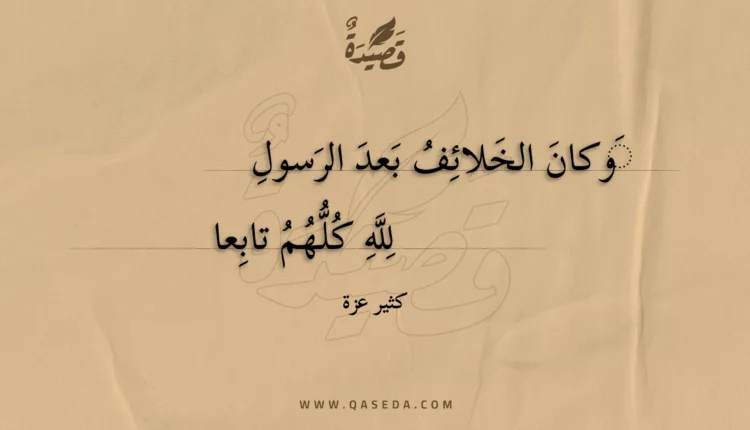 قَصِيدَةٌ
وَكانَ الخَلائِفُ بَعدَ الرَسولِ
لِلَّهِ كُلُّهُمُ تابِعا
كثير عزة
WWW.QASEDA.COM